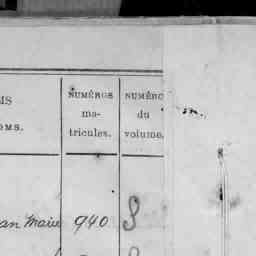 MS NUMÉROS NUMÉRO
ma- du
OMS. tricules. volume.
an Marie 940 8